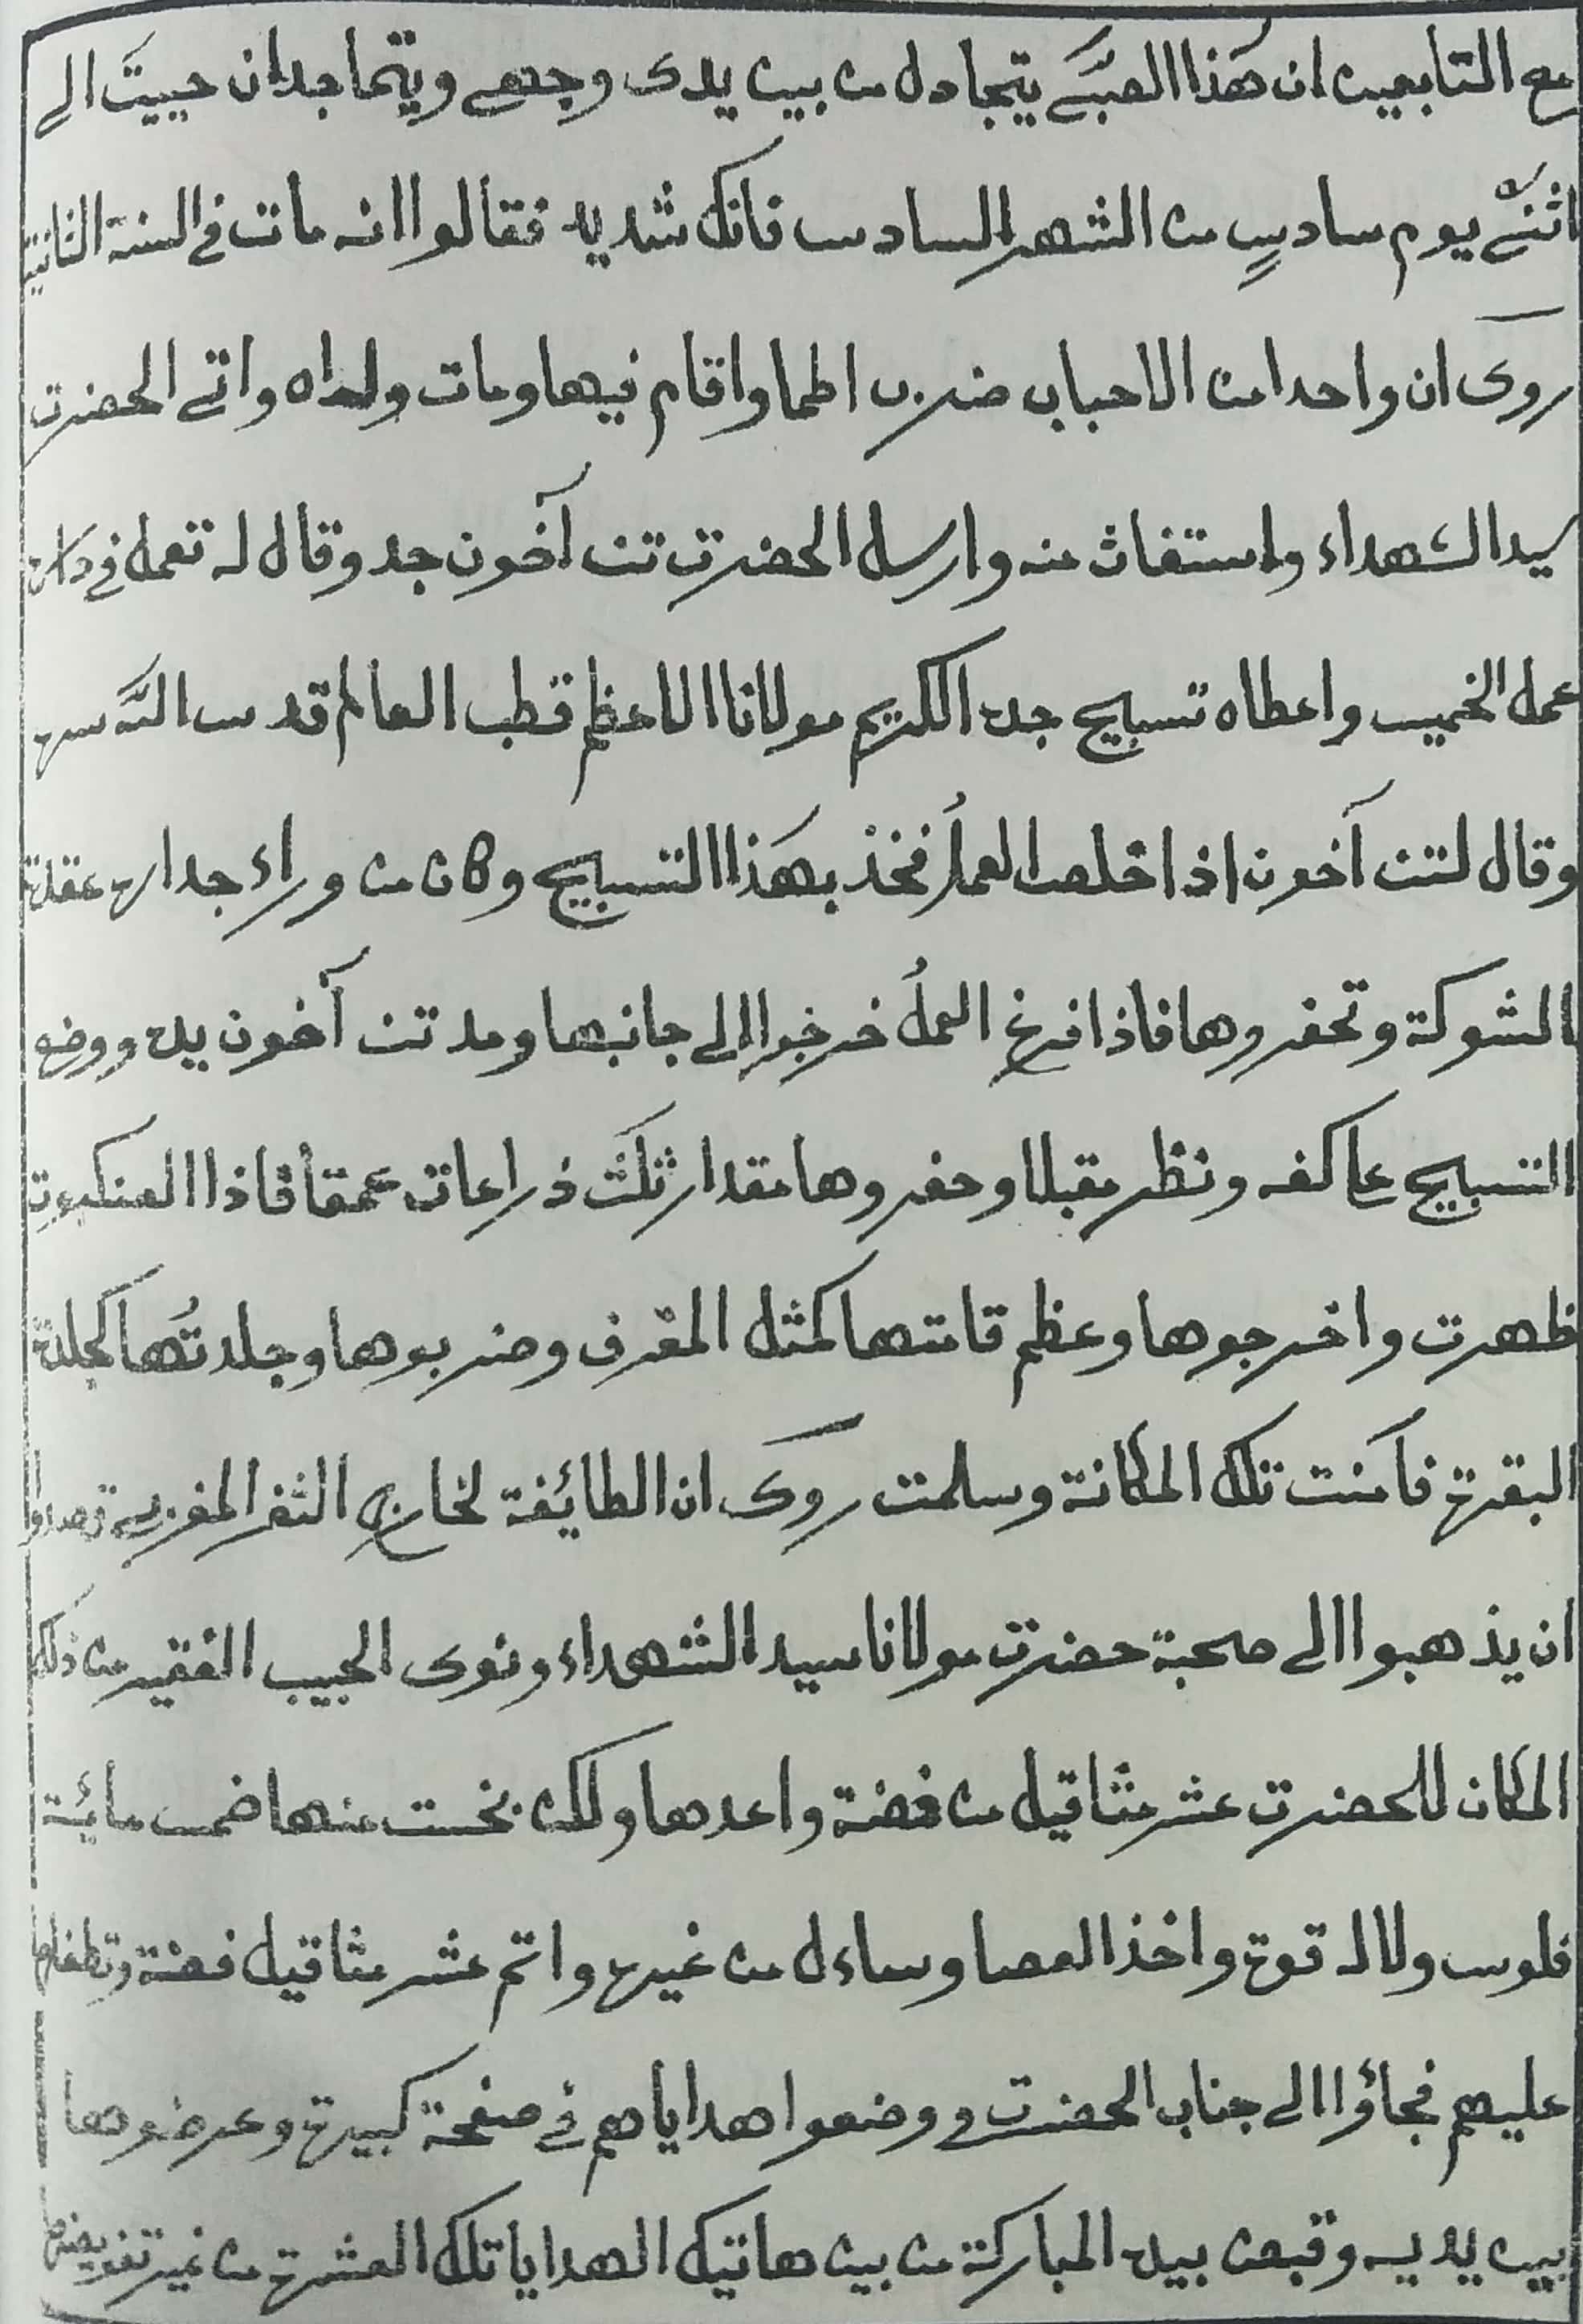 مع التابعين ان هذا الصبّے يتجادل من بين يدى وجهے ويتماجدان حييتَ الے
اثنّے يوم سادسٍ من الشهر السادس فانك شديد فقالوا انه مات فے السنة الثانية
روى ان واحدا من الاحباب ضرب اطما واقام فيها ومات ولداه واتے الحضرت
سيد الشهداء واستغاث منه وارسل الحضرت تت آخون جد وقال له تعمل فے داره
عمل الخميس واعطاه تسبيح جده الكريم مولانا الاعظم قطب العالم قدس الله سره
وقال لتت آخون اذا خلص العملُ فخذ بهذا التسبيح وكان من وراء جداره عقدة
الشوكة وتحفروها فاذا فرغ العملُ خرجوا الے جانبها ومد تت آخون يده ووضع
التسبيح علے كفه ونظر مقبلا وحفروها مقدار ثلث ذراعات عمقا فاذا العنكبوت
ظهرت واخرجوها وعظم قامتها كمثل المغرف وضربوها وجلدتُها كجلدة
البقرة فآمنت تلك المكانة وسلمت روى ان الطائفة لخارج الثغر المغربے قصدوا
ان يذهبوا الے صحبة حضرت مولانا سيد الشهداء ونوى الحبيب الفقير من ذلك
المكان للحضرت عشر مثاقيل من فضة واعدها ولكن نجست منها خمس مائية
فلوس ولا له قوة واخذ العصا وساءل من غيره واتم عشر مثاقيل فضة
عليهم فجاؤا الے جناب الحضرت ووضعوا هداياهم فے صفحة كبيرة وعرضوها
بين يديه وقبض بيده المباركة من بين هاتيك الهدايا تلك العشرة من غير